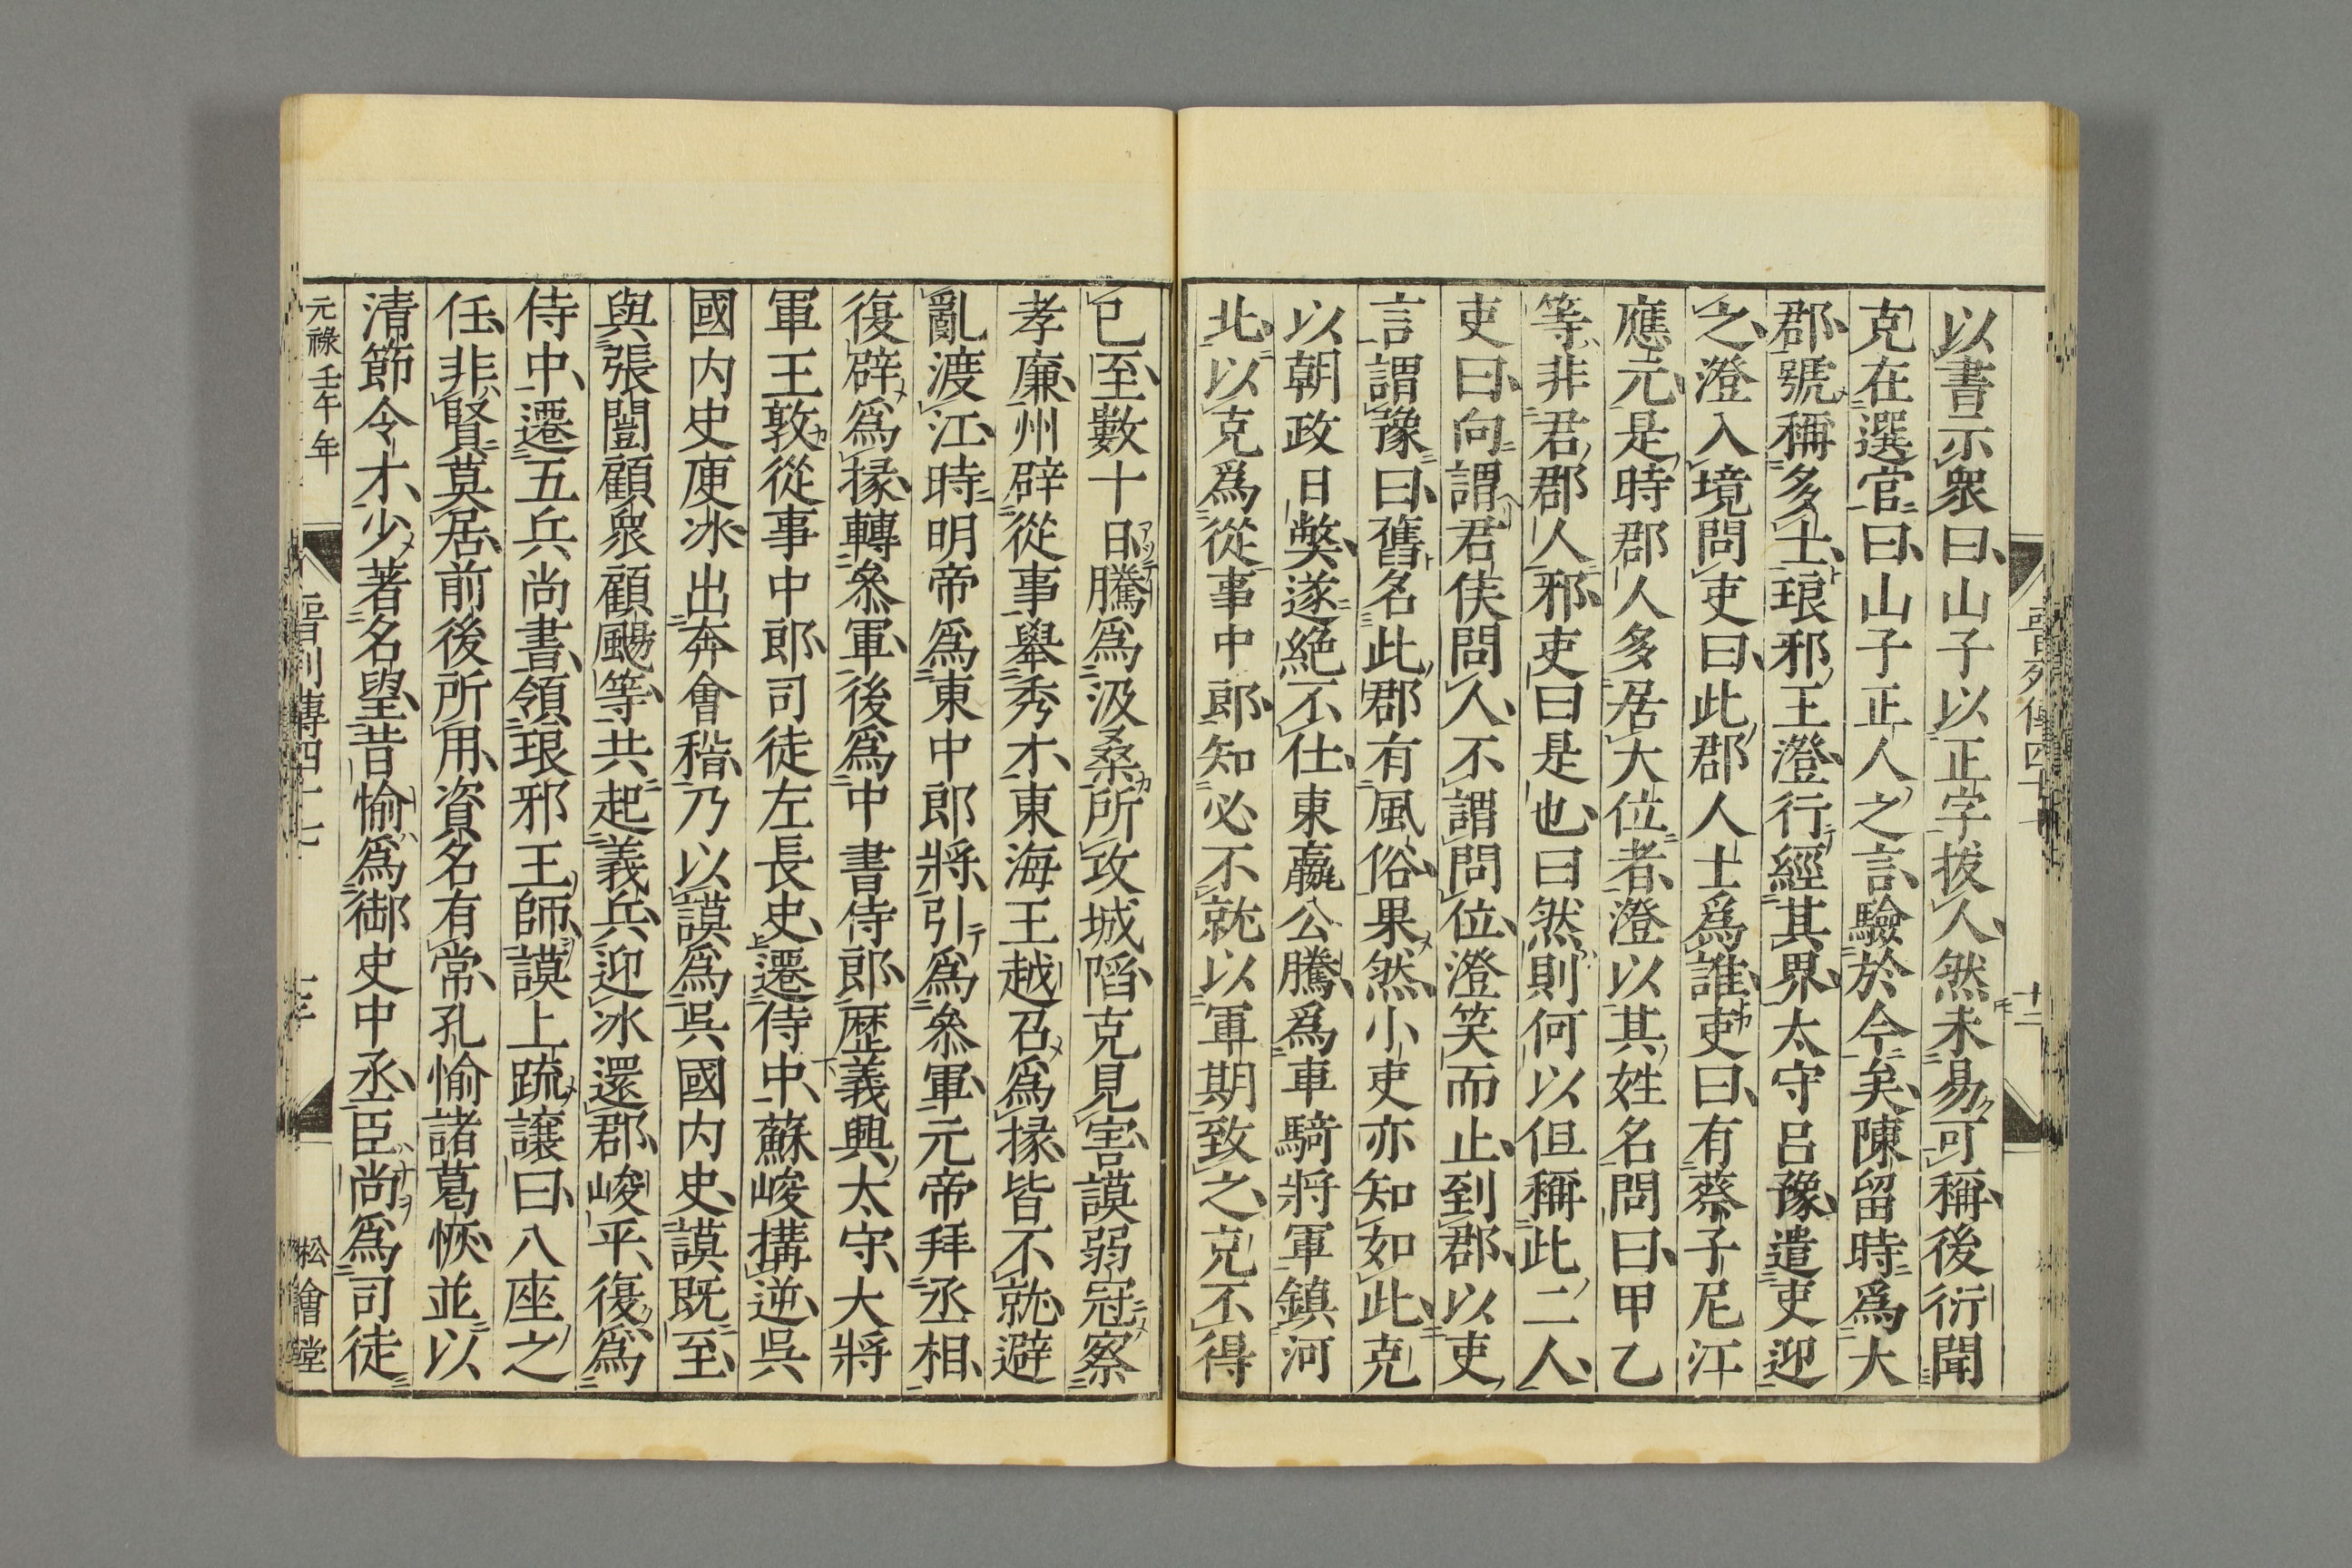 以書示衆曰山子以正字拔人然未易可稱後衍聞
克在選官曰山子正人之言驗於今矣陳留時爲大
郡號稱多士琅邪王澄行經其界太守呂豫遣吏迎
之澄入境問吏曰此郡人士爲誰吏曰有蔡子尼江
應元是時郡人多居大位者澄以其姓名問曰甲乙
等非君郡人邪吏曰是也曰然則何以但稱此二人
吏曰向謂君侯問人不謂問位澄笑而止到郡以吏
言謂豫曰舊名此郡有風俗果然小吏亦知如此克
以朝政日獘遂絶不仕東嬴公騰爲車騎將軍鎮河
北以克爲從事中郎知必不就以軍期致之克不得
已至數十日騰爲汲桑所攻城陷克見害謨弱冠察
孝廉州辟從事舉秀才東海王越召爲掾皆不就避
亂渡江時明帝爲東中郎將引爲叅軍元帝拜丞相
復辟爲掾轉叅軍後爲中書侍郎歷義興太守大將
軍王敦從事中郎司徒左長史遷侍中蘇峻搆逆吳
國内史庾冰出奔會稽乃以謨爲吳國内史謨既至
與張闓顧衆顧颺等共起義兵迎冰還郡峻平復爲
侍中遷五兵尚書領琅邪王師謨上疏譲曰八座之
任非賢莫居前後所用資名有常孔愉諸葛恢並以
清節令才少著名望昔愉爲御史中丞臣尚爲司徒
元祿壬午年
晉列傳四十七
松會堂